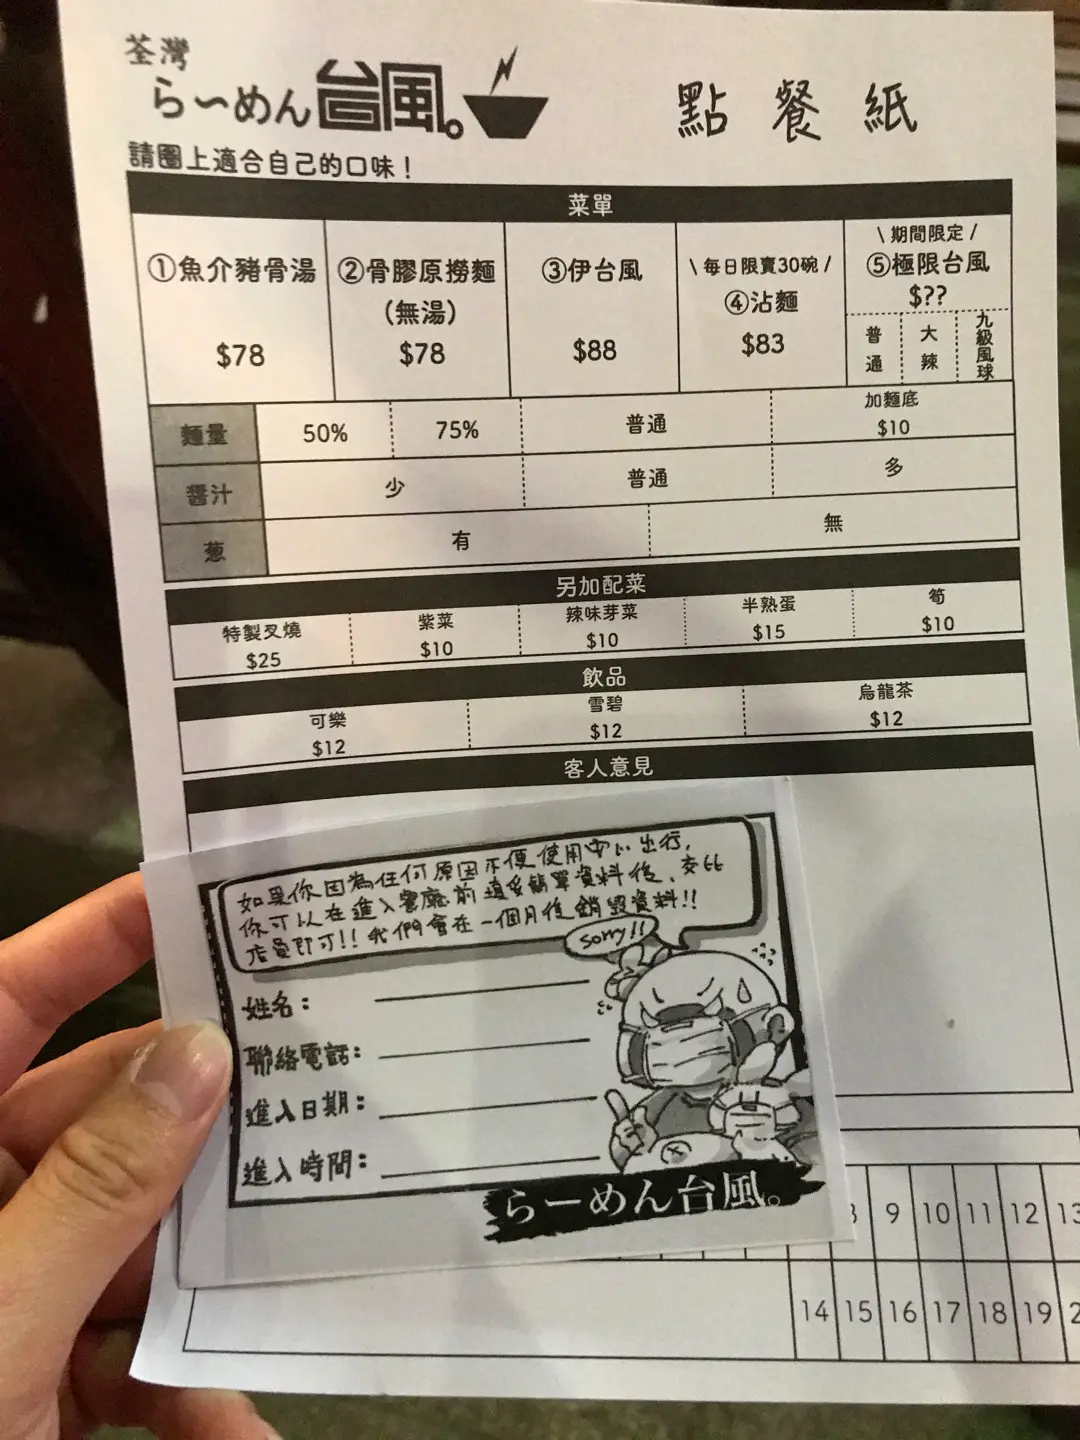 荃灣
らーめん 台風。
點餐紙
請圈上適合自己的口味！
菜單
①魚介豬骨湯
$78
②骨膠原撈麵
（無湯）
$78
③伊台風
$88
\ 每日限賣30碗 /
④沾麵
$83
\ 期間限定 /
⑤極限台風
$??
普通 大辣 九級風球
麵量 50% 75% 普通 加麵底
$10
醬汁 少 普通 多
葱 有 無
另加配菜
特製叉燒 紫菜 辣味芽菜 半熟蛋 筍
$25 $10 $10 $15 $10
飲品
可樂 雪碧 烏龍茶
$12 $12 $12
客人意見
如果你因為任何原因不便使用安心出行，
你可以在進入餐廳前填妥簡單資料後，交比
店員即可!! 我們會在一個月後銷毀資料!!
Sorry!!
姓名：
聯絡電話：
進入日期：
進入時間：
らーめん台風。
9 10 11 12 13
14 15 16 17 18 19